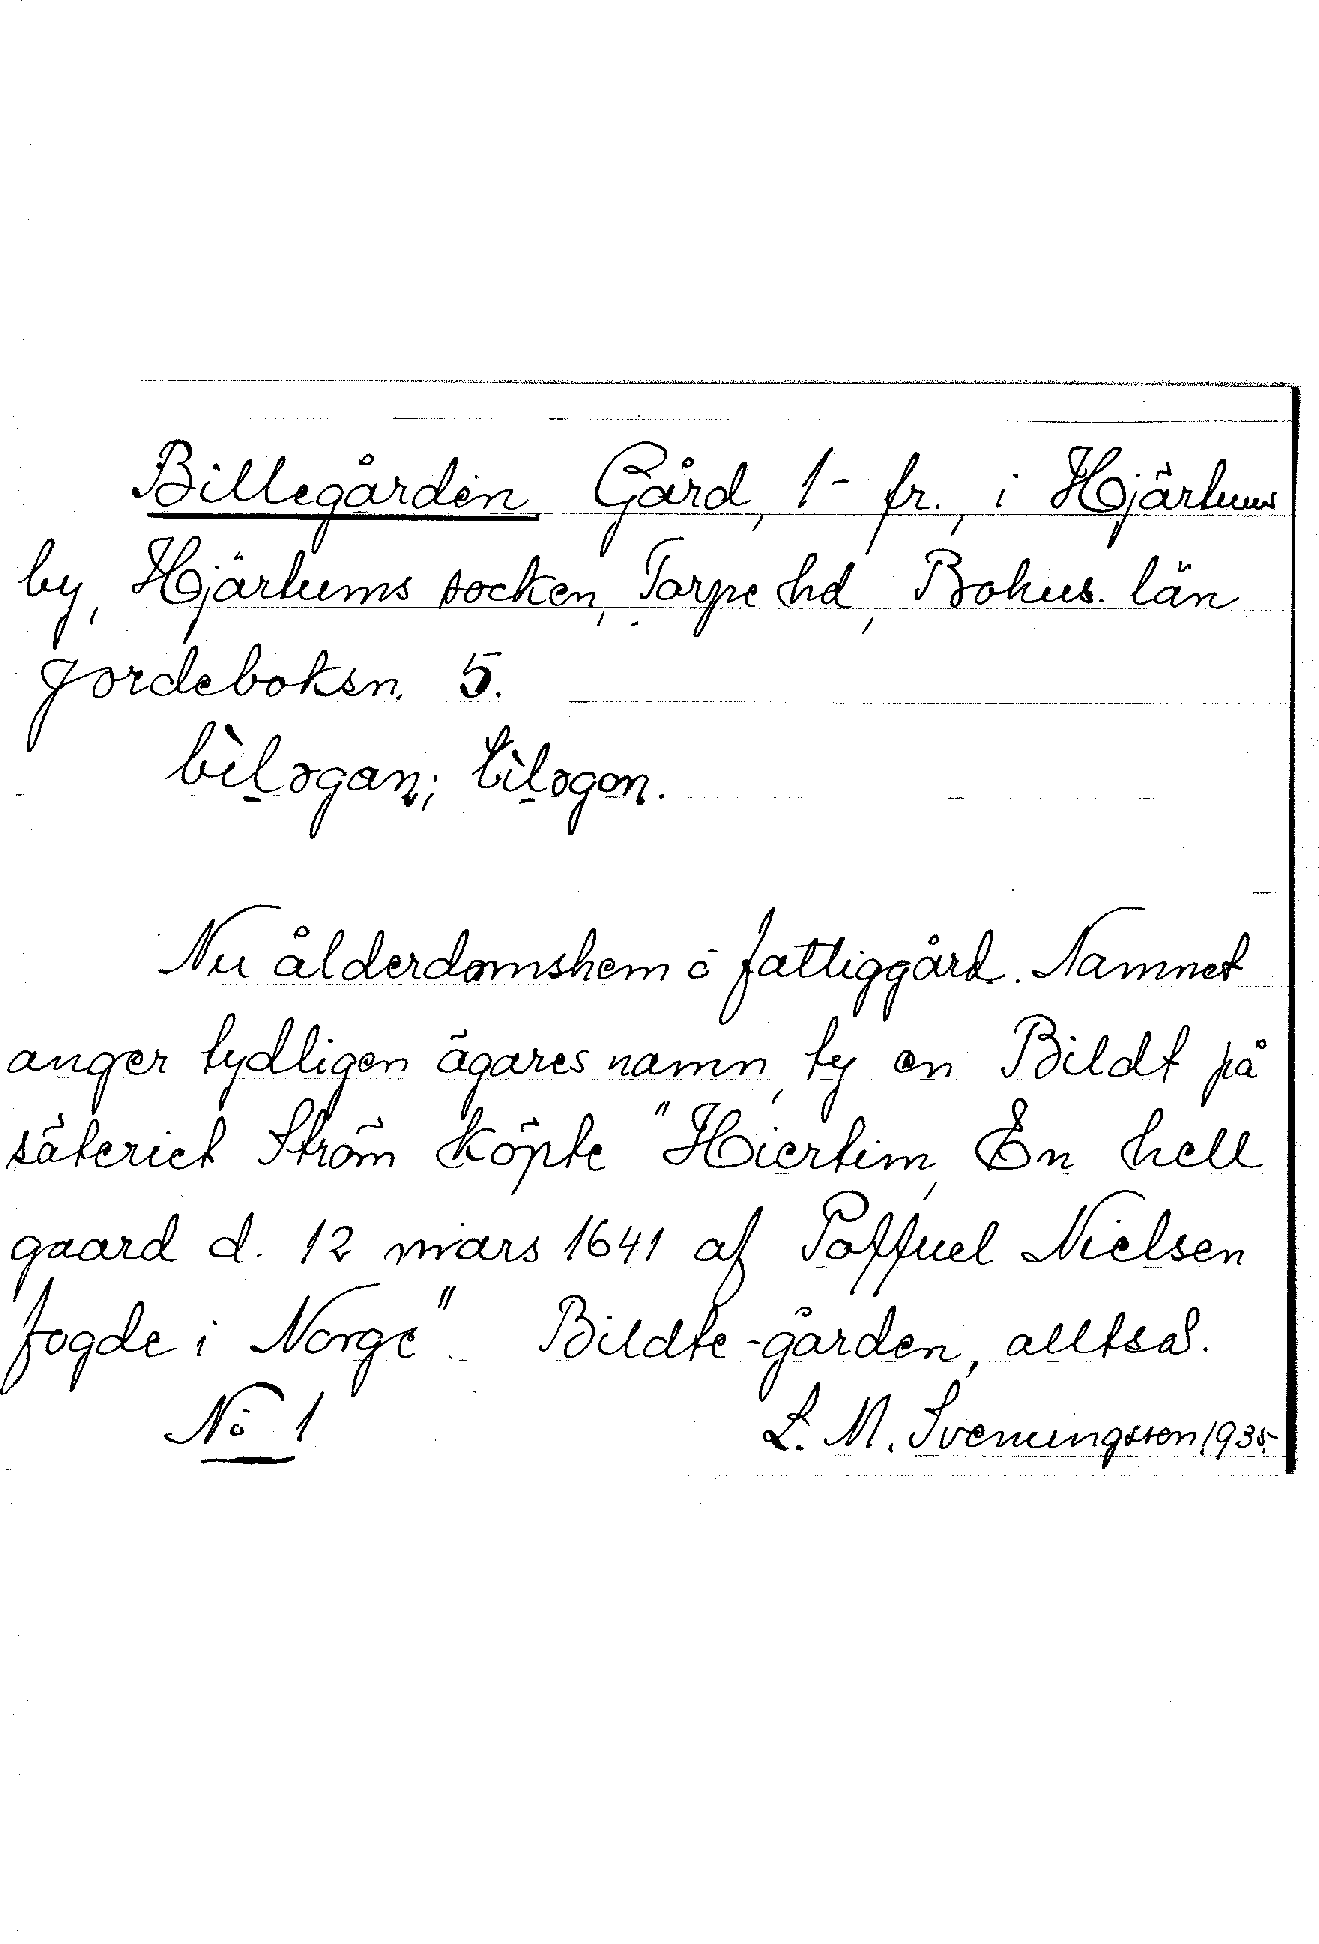 Billegården, Gård, 1- fr., i Hjärtums
by, Hjärtums socken, Torpe hd, Bohus. län
Jordeboksn. 5.
bìləgan; bìləgon.
Nu ålderdomshem o fattiggård. Namnet
anger tydligen ägares namn, ty en Bildt på
säteriet Ström köpte "Hiertim, En hell
gaard d. 12 mars 1641 af Poffuel Nielsen
fogde i Norge". Bildte-gården, alltså.
No 1 L. M. Svenungsson 1935.